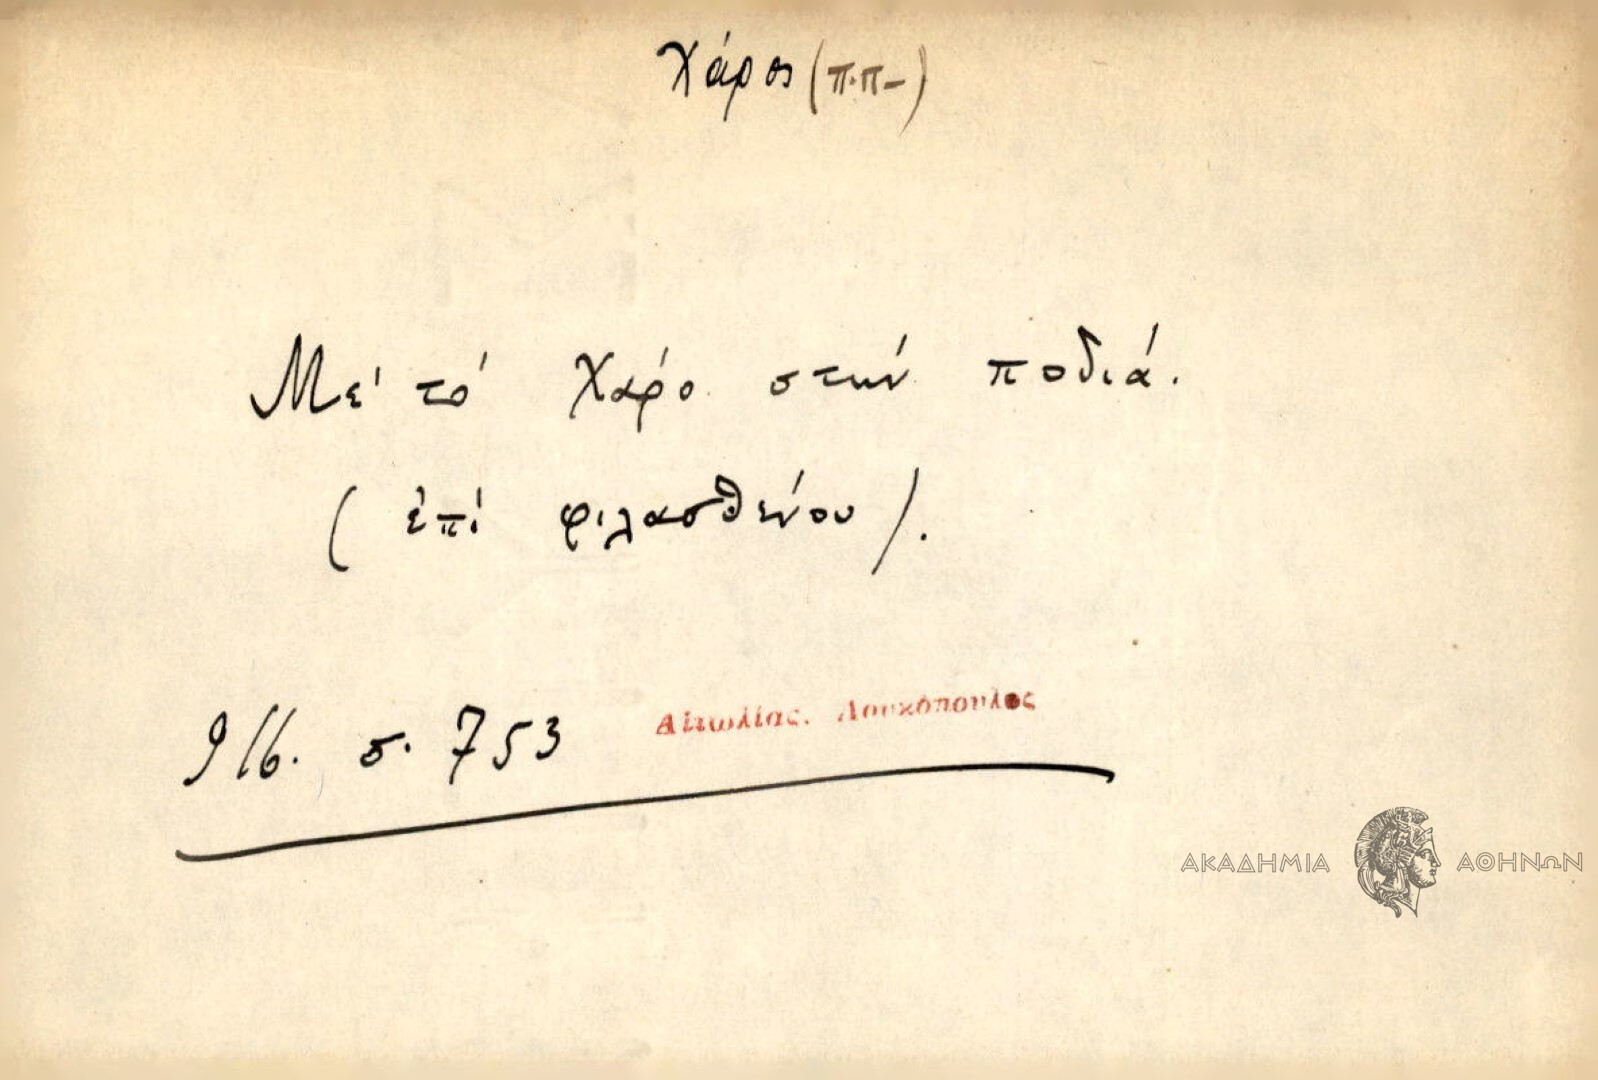 Χάρος (π.π-)
Μέ τό Χάρο στήν ποδιά.
(ἐπί φιλασθένου).
916. σ. 753 Αἰτωλίας. Λουκόπουλος
ΑΚΑΔΗΜΙΑ ΑΘΗΝΩΝ